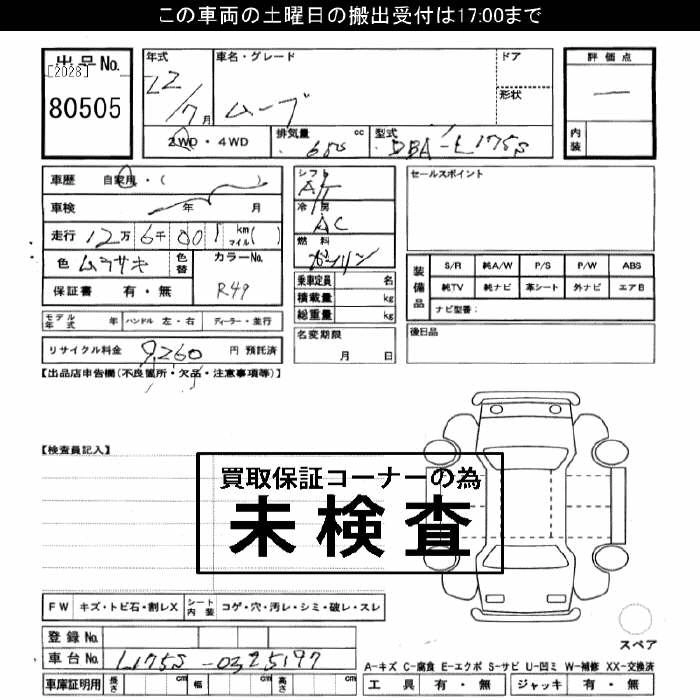 この車両の土曜日の搬出受付は17:00まで
出品No.
[2028]
80505
年式
12/7月
車名・グレード
ムーブ
ドア
形状
評価点
内装
2WD・4WD
排気量 cc
型式
DBA-L175S
車歴 自家用・( )
車検 年 月
走行 12万6千001 km マイル( )
色 ムラサキ
色替
カラーNo.
R49
保証書 有・無
シフト
AT
冷房
AC
燃料
ガソリン
乗車定員 名
積載量 kg
総重量 kg
セールスポイント
装備品
S/R 純A/W P/S P/W ABS
純TV 純ナビ 革シート 外ナビ エアB
ナビ型番:
モデル年式 年 ハンドル 左・右 ディーラー・並行
名変期限
月 日
後日品
リサイクル料金 9,260 円 預託済
【出品店申告欄(不良箇所・欠品・注意事項等)】
【検査員記入】
買取保証コーナーの為
未検査
FW キズ・トビ石・割レX
シート内装 コゲ・穴・汚レ・シミ・破レ・スレ
登録No.
車台No. L175S-0325197
車庫証明用 長さ cm 幅 cm 高さ cm
スペア
A-キズ C-腐食 E-エクボ S-サビ U-凹ミ W-補修 XX-交換済
工具 有・無 ジャッキ 有・無